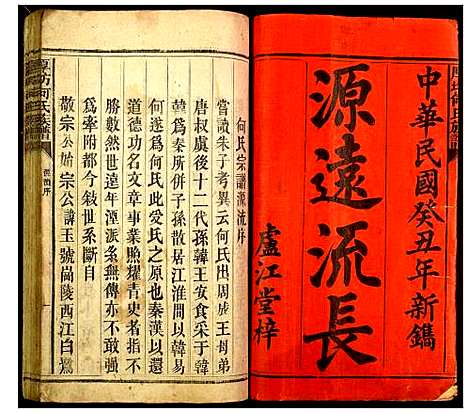 中華民國癸丑年新鐫
源遠流長
盧江堂梓
何氏宗譜源流序
嘗讀朱子考異云何氏出周成王母弟
唐叔虞後十二代孫韓王安食采于韓
韓爲秦所併子孫散居江淮間以韓易
何遂爲何氏此受氏之原也秦漢以還
道德功名文章事業照耀青史者指不
勝數然世遠年湮派系無傳不敢妄
爲牽附都今敘世系斷自
敬宗公始宗公諱玉號尚陵西江白鷺
何氏族譜
源流序